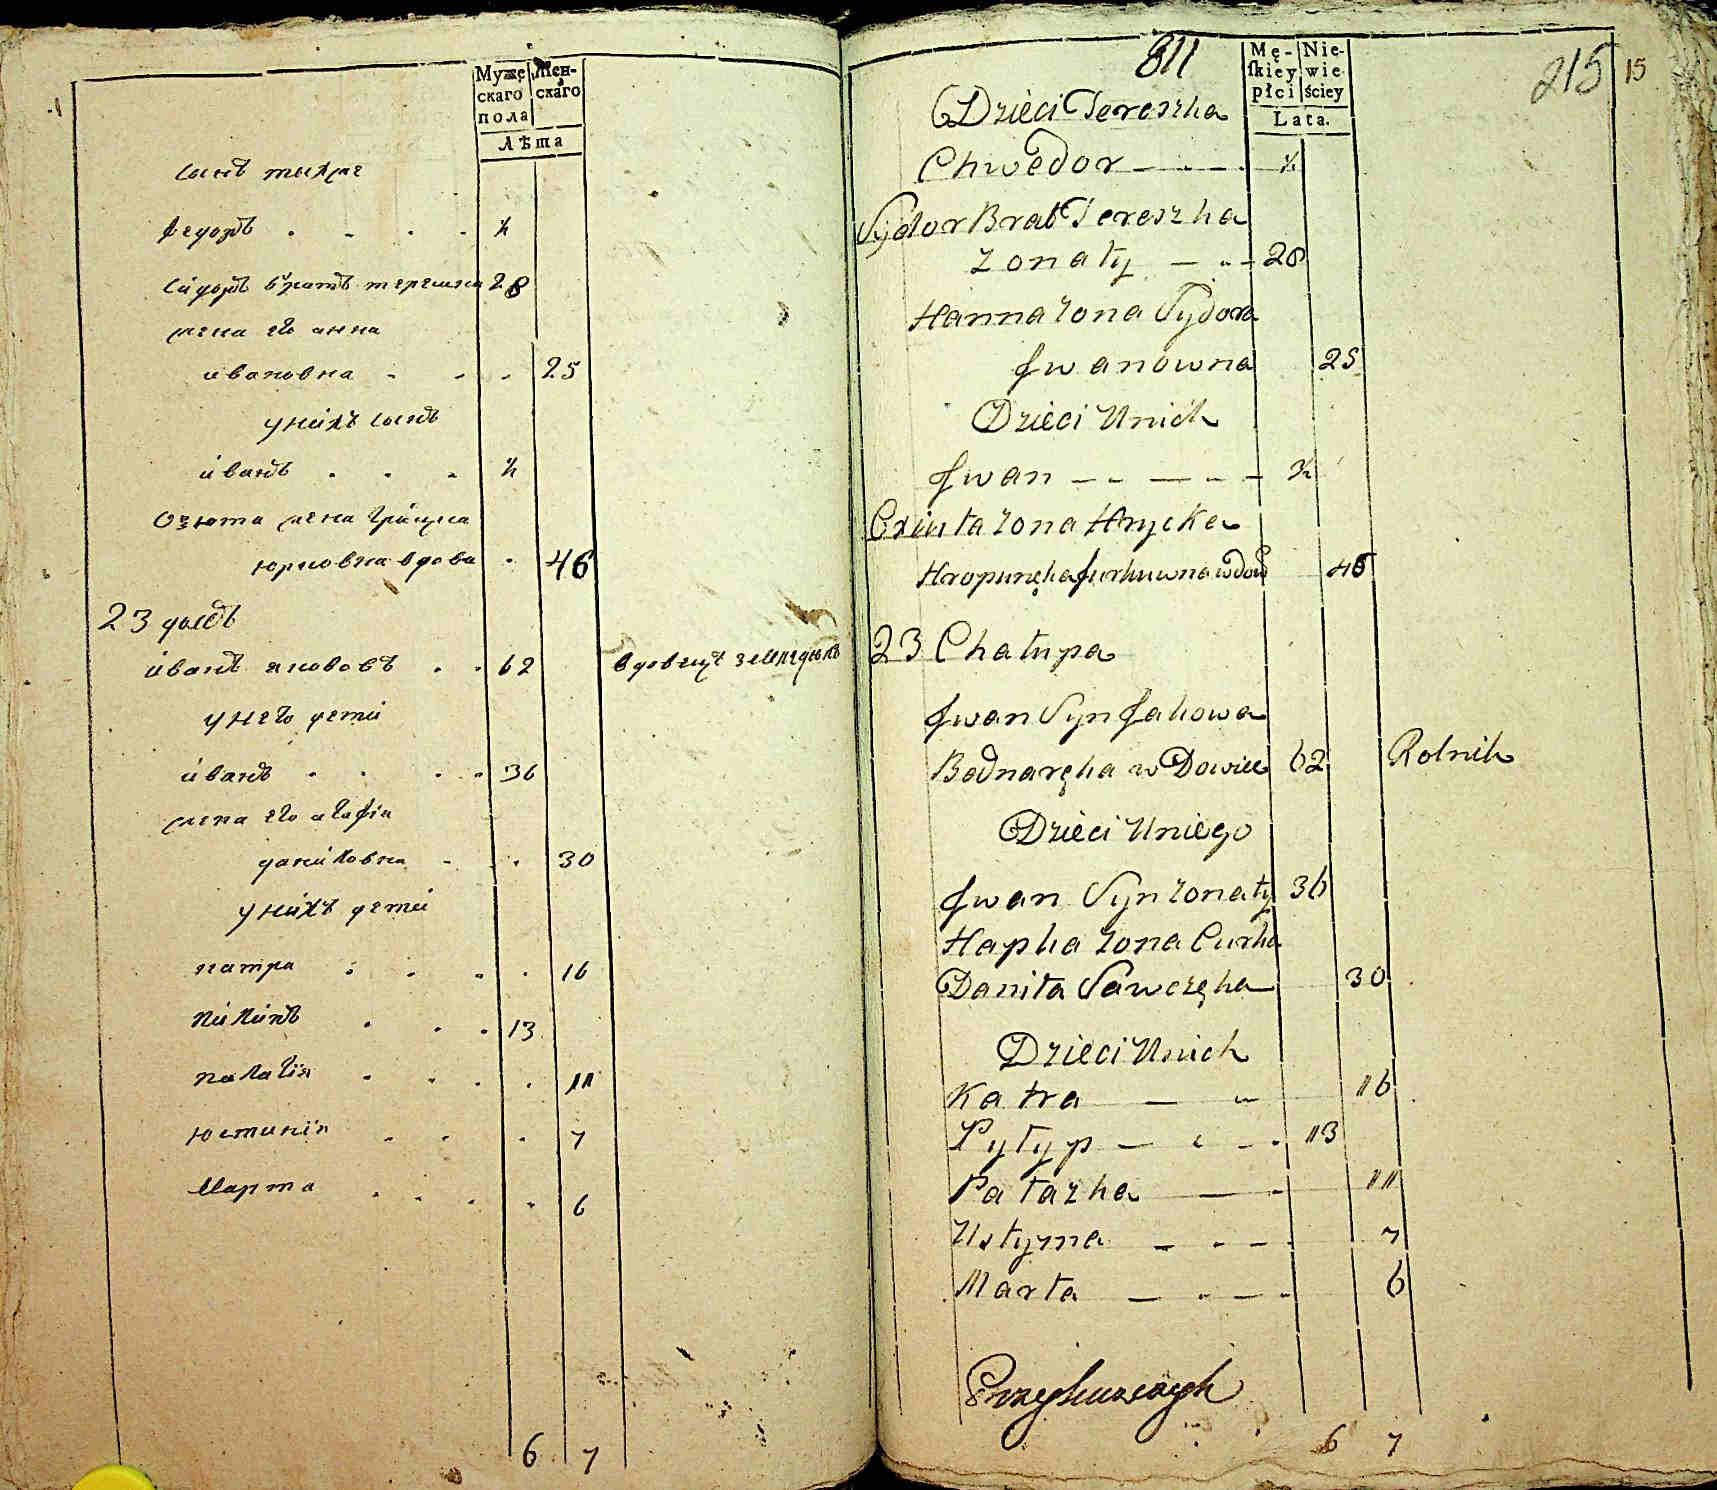 Мужескаго пола
Женскаго
Лѣта
сынъ
федоръ . . . . ½
сидоръ братъ терешка 28
жена его анна
ивановна . . . 25
у нихъ сынъ
иванъ . . . ½
жена грицка
юрковна вдова . 46
23 домъ
иванъ якововъ . . 62 вдовецъ
у него дети
иванъ . . . . 36
жена его агафия
даниловна . . 30
у нихъ дети
катра . . . . 16
пилипъ . . . 13
палагия . . . . 11
юстиния . . . 7
Марта . . . . 6
6 7
811
215 15
Męskiey płci
Niewieściey
Lata.
Dzieci Tereszka
Chwedor ½
Sydor Brat Tereszka
zonaty 28
Hanna zona Sydora
Jwanowna 25
Dzieci Unich
Jwan ½
zona Hrycka
Jurkuwna wdow 46
23 Chałupa
Jwan Syn Jakowa
Bodnaręka w Dowiec 62 Rolnik
Dzieci Uniego
Jwan Syn zonaty 36
Hapka zona Curka
Daniła Sawczęka 30
Dzieci Unich
Katra 16
Pyłyp 13
Pałazka 11
Ustyma 7
Marta 6
6 7